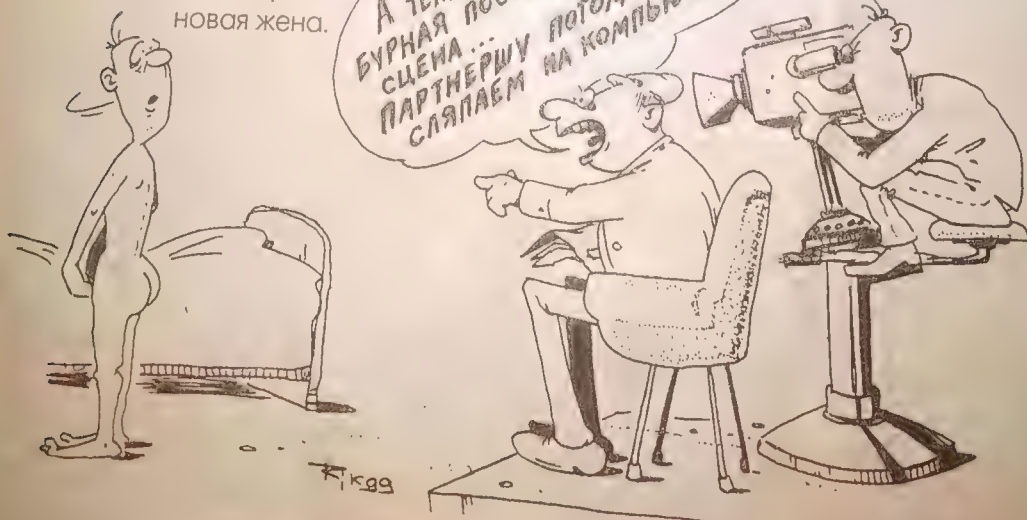 новая жена.
А ТЕП
БУРНАЯ ПОС
СЦЕНА...
ПАРТНЕРШУ ПОТОМ
СЛЯПАЕМ НА КОМПЬЮ